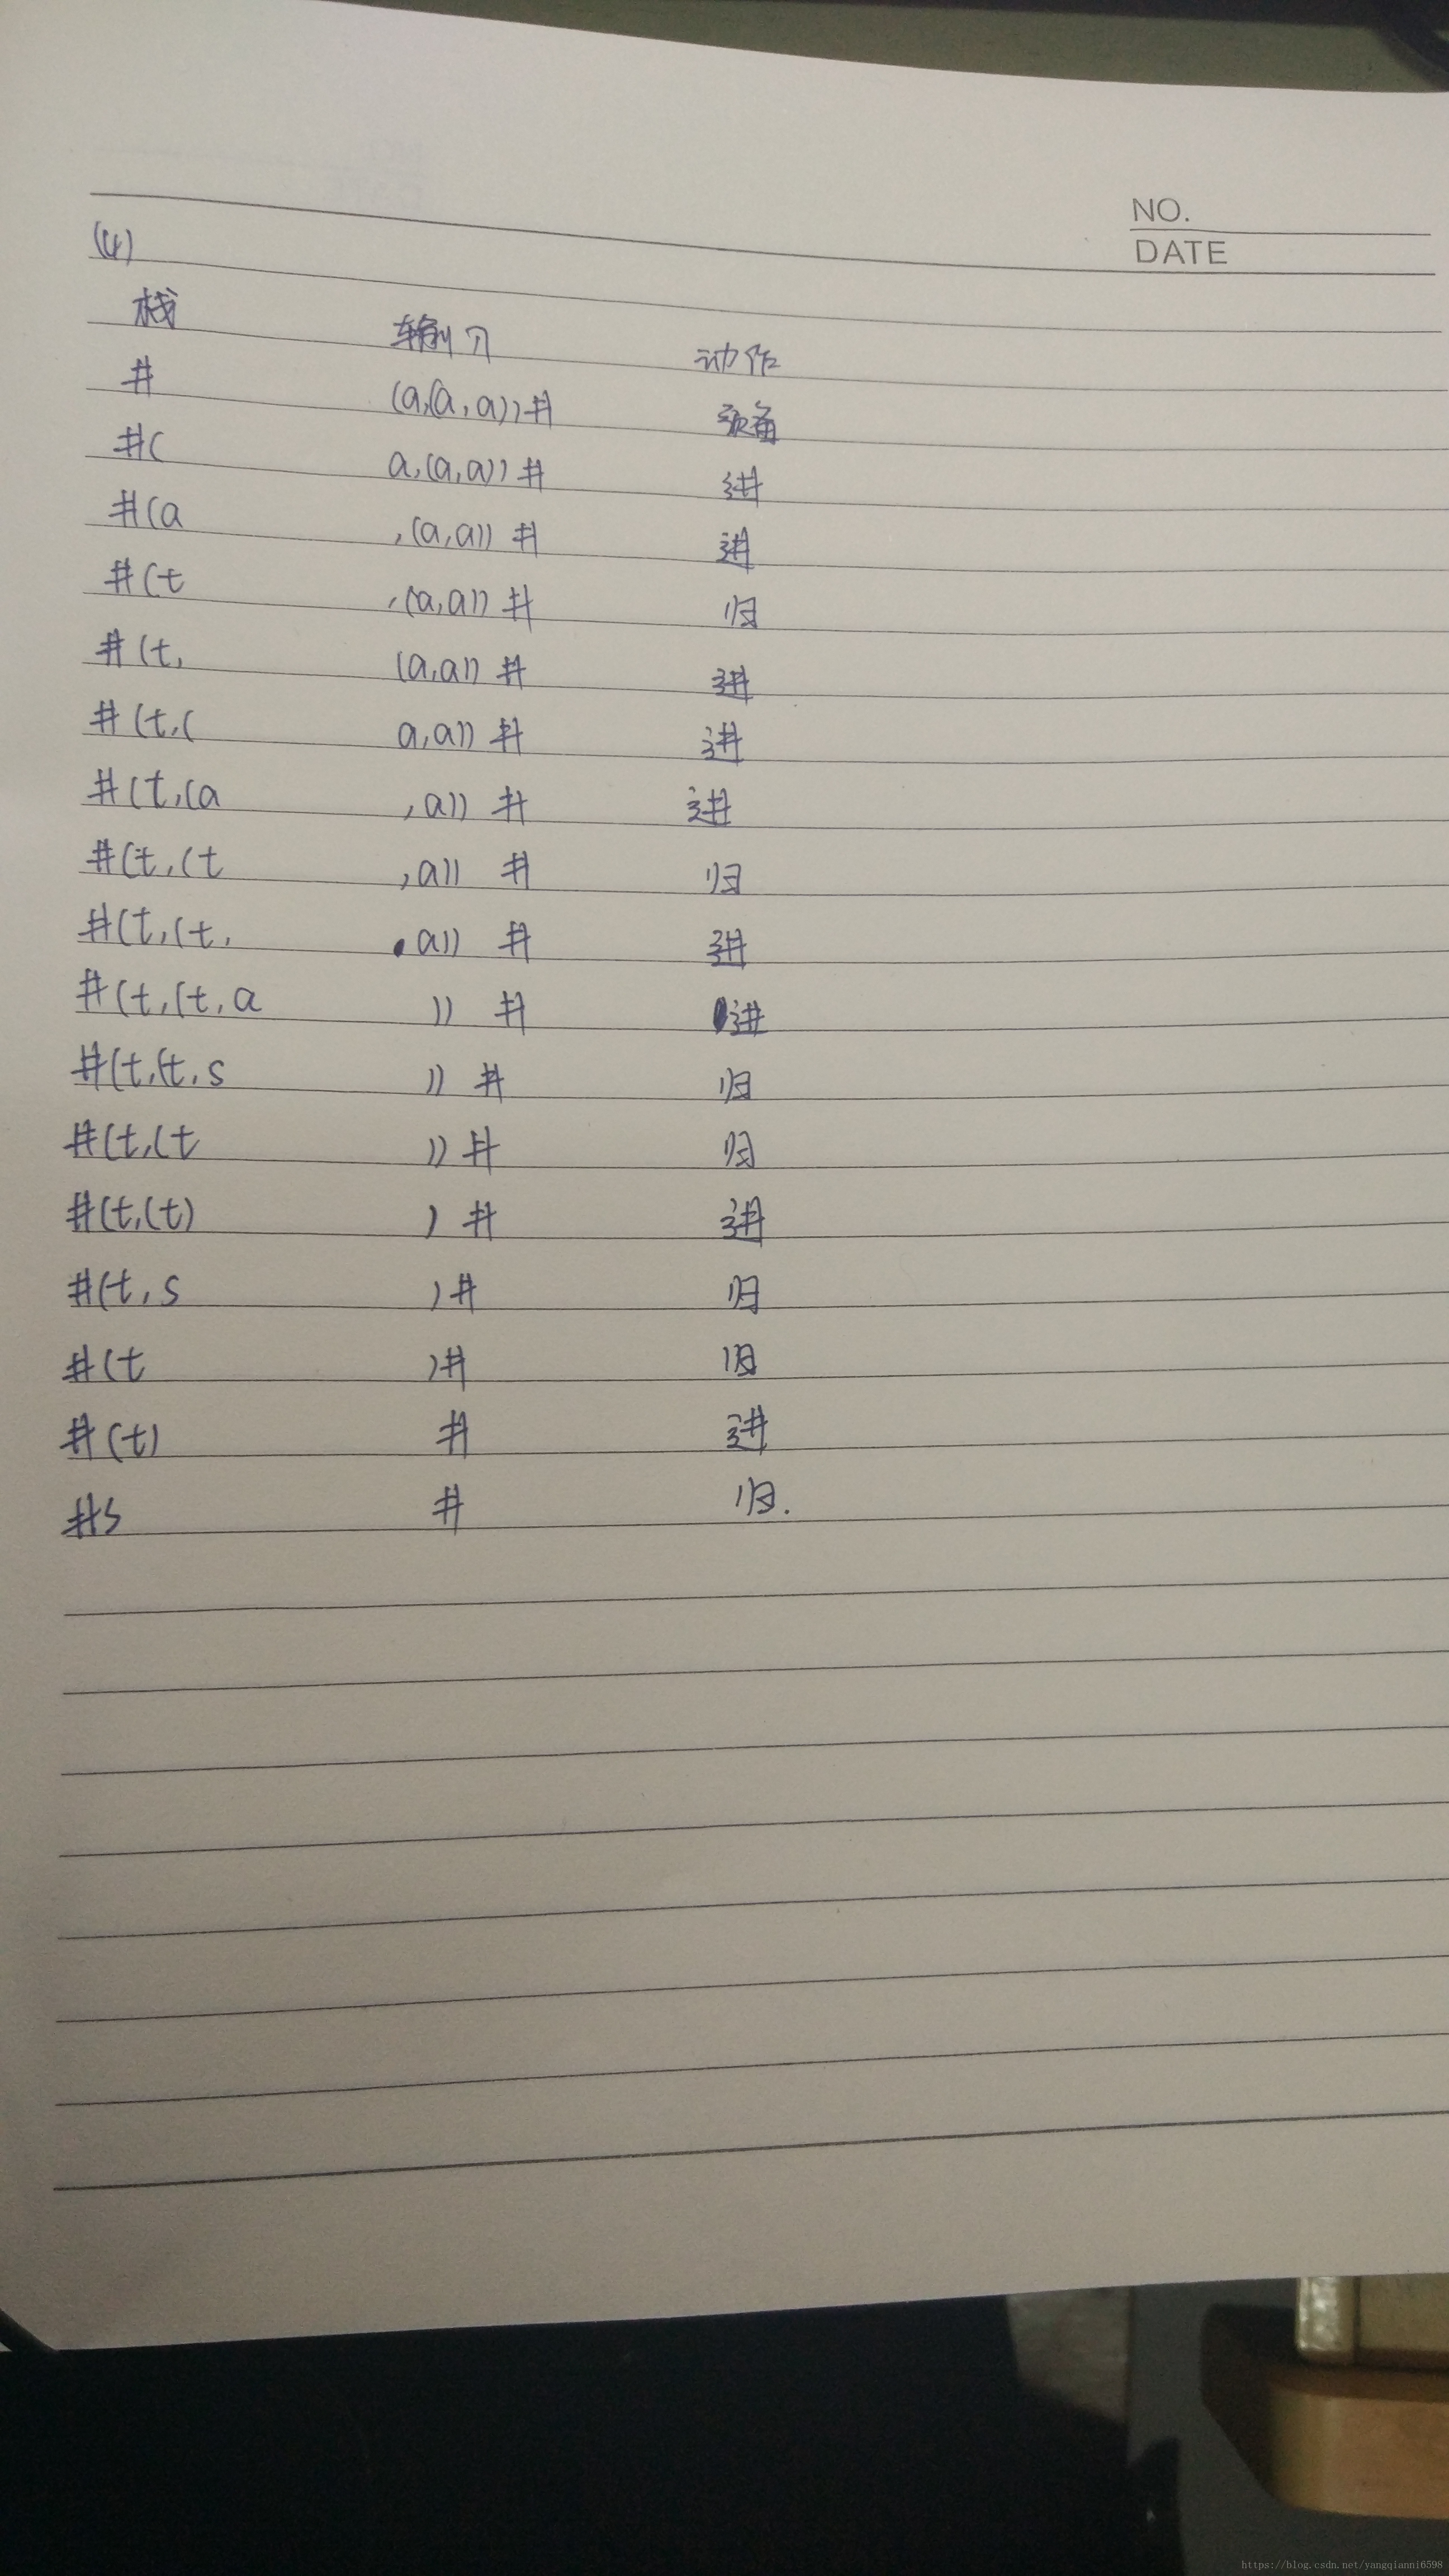 NO.
DATE
(4)
栈 输入 动作
# (a,(a,a))# 预备
#( a,(a,a))# 进
#(a ,(a,a))# 进
#(t ,(a,a))# 归
#(t, (a,a))# 进
#(t,( a,a))# 进
#(t,(a ,a))# 进
#(t,(t ,a))# 归
#(t,(t, a))# 进
#(t,(t,a ))# 进
#(t,(t,s ))# 归
#(t,(t ))# 归
#(t,(t) )# 进
#(t,s )# 归
#(t )# 归
#(t) # 进
#s # 归.
https://blog.csdn.net/yangqianni6598